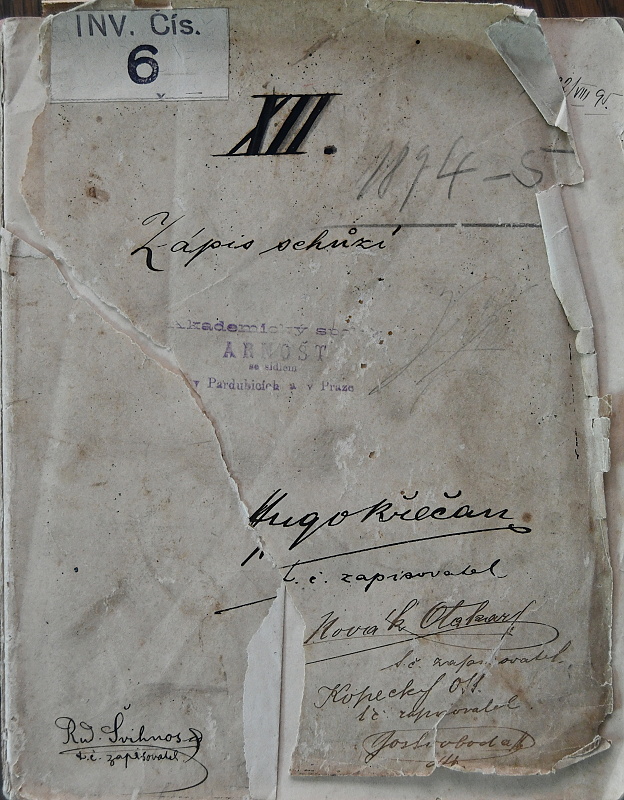 INV. Čís.
6
XII.
1894-5
Zápis schůzí
Akademický spolek
ARNOŠT
se sídlem
v Pardubicích a v Praze
Hugo Křečan
t. č. zapisovatel
Novák Otakar
t. č. zapisovatel
Kopecký Ott.
t. č. zapisovatel
Rud. Švihnos
t. č. zapisovatel